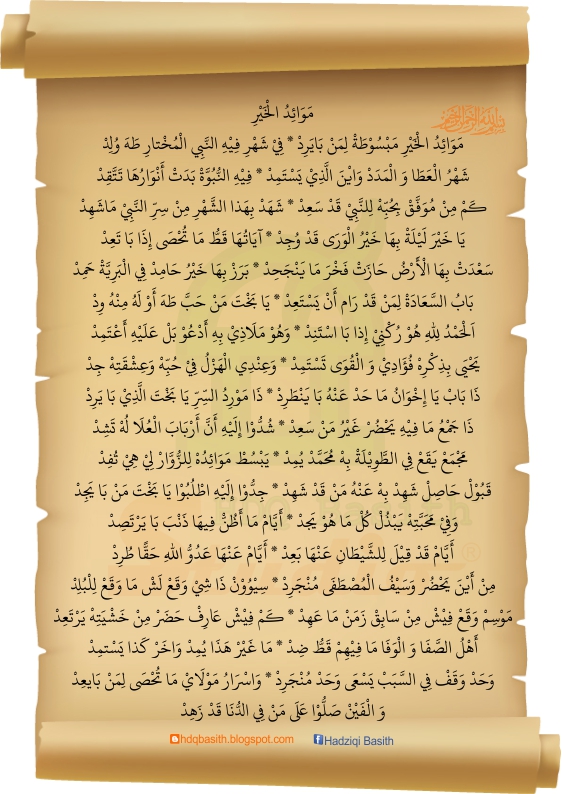 مَوَائِدُ الْخَيْرِ
مَوَائِدُ الْخَيْرِ مَبْسُوْطَةْ لِمَنْ بَايَرِدْ * فِيْ شَهْرِ فِيْهِ النَّبِي الْمُخْتَارِ طَهَ وُلِدْ
شَهْرُ الْعَطَا وَ الْمَدَدْ وَايْنَ الَّذِيْ يَسْتَمِدْ * فِيْهِ النُّبُوَّةْ بَدَتْ أَنْوَارُهَا تَتَّقِدْ
كَمْ مِنْ مُوَفَّقْ بِحُبِّهْ لِلنَّبِيْ قَدْ سَعِدْ * شَهَدْ بِهَذا الشَّهْرِ مِنْ سِرِّ النَّبِيْ مَاشَهِدْ
يَا خَيْرَ لَيْلَةْ بِهَا خَيْرُ الْوَرَى قَدْ وُجِدْ * آيَاتُهَا قَطُّ مَا تُحْصَى إِذَا بَا تَعِدْ
سَعَدَتْ بِهَا الْأَرْضُ حَازَتْ فَخْرَ مَا يَنْجَحِدْ * بَرَزْ بِهَا خَيْرُ حَامِدْ فِي الْبَرِيَّةْ حَمِدْ
بَابُ السَّعَادَةْ لِمَنْ قَدْ رَام أَنْ يَسْتَعِدْ * يَا بَخْتَ مَنْ حَبَّ طَهَ أَوْ لَهْ مِنْهُ وِدْ
اَلْحَمْدُ لِلهِ هُوْ رُكْنِيْ إِذا بَا اسْتَنِدْ * وَهُوْ مَلَاذِيْ بِهِ أَدْعُوْ بَلْ عَلَيْهِ أَعْتَمِدْ
يَحْيَى بِذِكْرِهْ فُؤَادِيْ وَ الْقُوَى تَسْتَمِدْ * وَعِنْدِي الْهَزْلُ فِيْ حُبِّهْ وَعِشْقَتِهْ جِدْ
ذَا بَابْ يَا إِخْوَانُ مَا حَدْ عَنْهُ بَا يَنْطَرِدْ * ذَا مَوْرِدُ السِّرِّ يَا بَخْتَ الَّذِيْ بَا يَرِدْ
ذَا جَمْعُ مَا فِيْهِ يَحْضُرْ غَيْرُ مَنْ سَعِدْ * شُدُّوْا إِلَيْهِ أَنَّ أَرْبَابَ الْعُلَا لُهْ تَشِدْ
مَجْمَعْ يَقَعْ فِي الطَّوِيْلَةْ بِهْ مُحَمَّدْ يُمِدْ * يَبْسُطْ مَوَائِدْهْ لِلزُّوَّارْ لِيْ هِيْ تُفِدْ
قَبُوْلْ حَاصِلْ شَهِدْ بِهْ عَنْهُ مَنْ قَدْ شَهِدْ * جِدُّوْا إِلَيْهِ اطْلُبُوْا يَا بَخْتَ مَنْ بَا يَجِدْ
وَفِيْ مَحَبَّتِهْ يَبْذُلْ كُلَّ مَا هُوْ يَجِدْ * أَيَّامُ مَا أَظُنُّ فِيهَا ذَنْبَ بَا يَرْتَصِدْ
أَيَّامْ قَدْ قِيْلَ لِلشَّيْطَانِ عَنْهَا بَعِدْ * أَيَّامْ عَنْهَا عَدُوُّ اللهِ حَقًّا طُرِدْ
مِنْ أَيْنَ يَحْضُرْ وَسَيْفُ الْمُصْطَفَى مُنْجَرِدْ * سِيْوُوْنْ ذَا شِيْ وَقَعْ لَشْ مَا وَقَعْ لِلْبُلِدْ
مَوْسِمْ وَقَعْ فِيْشْ مِنْ سَابِقْ زَمَنْ مَا عَهِدْ * كَمْ فِيْشْ عَارِفْ حَضَرْ مِنْ خَشْيَتِهْ يَرْتَعِدْ
أَهْلُ الصَّفَا وَ الْوَفَا مَا فِيْهِمْ قَطُّ ضِدْ * مَا غَيْرْ هَذَا يُمِدْ وَاخَرْ كَذا يَسْتَمِدْ
وَحَدْ وَقَفْ فِي السَّبَبْ يَسْعَى وَحَدْ مُنْجَرِدْ * وَاسْرَارُ مَوْلَايْ مَا تُحْصَى لِمَنْ بَايعِدْ
وَ الْفَيْنْ صَلُّوْا عَلَى مَنْ فِي الدُّنَا قَدْ زَهِدْ
hdqbasith.blogspot.com Hadziqi Basith